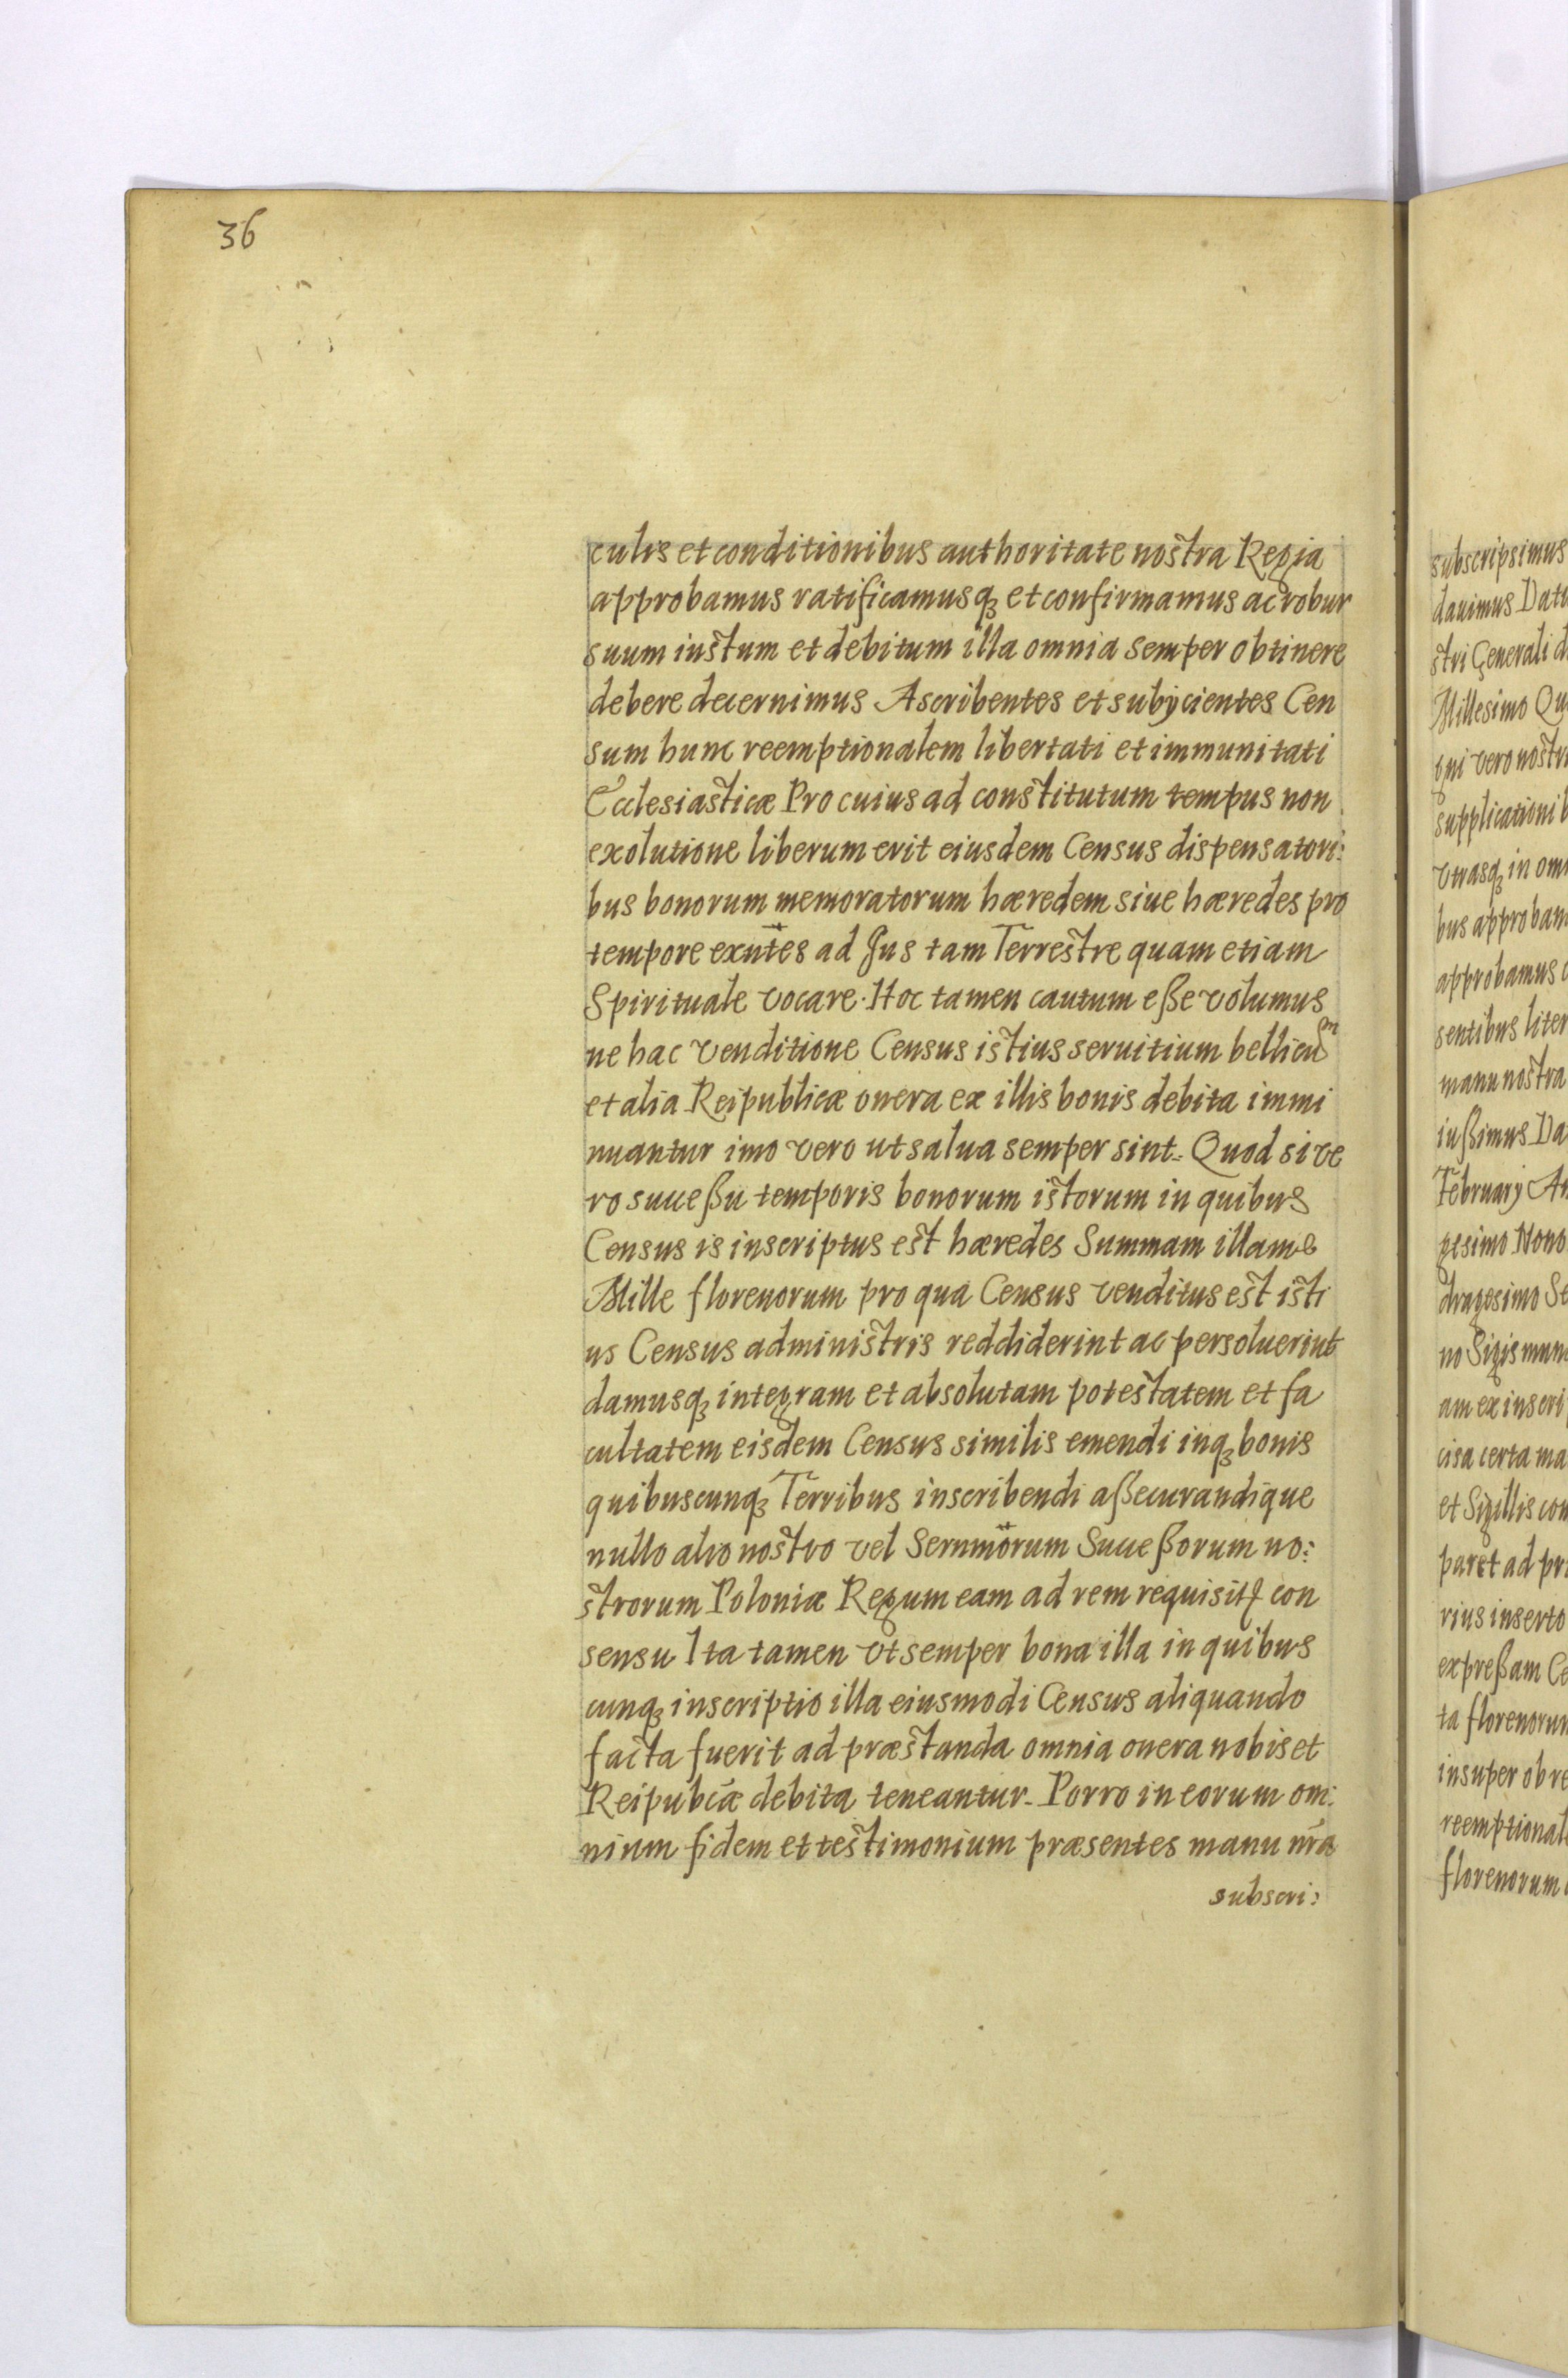 36
culis et conditionibus authoritate nostra Regia
approbamus ratificamusq₃ et confirmamus ac robur
suum iustum et debitum illa omnia semper obtinere
debere decernimus Ascribentes et subijcientes Cen
sum hunc reemptionalem libertati et immunitati
Ecclesiasticæ Pro cuius ad constitutum tempus non
exolutione liberum erit eiusdem Census dispensatori:
bus bonorum memoratorum hæredem siue hæredes pro
tempore exñtes ad Jus tam Terrestre quam etiam
Spirituale vocare. Hoc tamen cautum eße volumus
ne hac venditione Census istius seruitium bellicuᵐ
et alia Reipublicæ onera ex illis bonis debita immi
nuantur imo vero ut salua semper sint. Quod si ve
ro succeßu temporis bonorum istorum in quibus
Census is inscriptus est hæredes Summam illam
Mille florenorum pro qua Census venditus est isti
us Census administris reddiderint ac persoluerint
damusq₃ integram et absolutam potestatem et fa
cultatem eisdem Census similis emendi inq₃ bonis
quibuscunq₃ Terribus inscribendi aßecurandique
nullo alio nostro vel Sernmorum Succeßorum no:
strorum Poloniæ Regum eam ad rem requisito con
sensu Ita tamen vt semper bona illa in quibus
cunq₃ inscriptio illa eiusmodi Census aliquando
facta fuerit ad præstanda omnia onera nobis et
Reipubcæ debita teneantur. Porro in eorum om:
nium fidem et testimonium præsentes manu nr̃a
subscri:
subscripsimus
dauimus Datu
stri Generali d
Millesimo Qu
gni vero nostri
supplicationib
vtrasq₃ in om
bus approbam
approbamus
sentibus liter
manu nostra
iußimus Da
Februarij An
gesimo Nono
dragesimo Se
no Sigismun
am ex inscri
cisa certa ma
et Sigillis com
paret ad pr
rius inserto
expreßam Ce
ta florenorum
insuper ob re
reemptional
florenorum